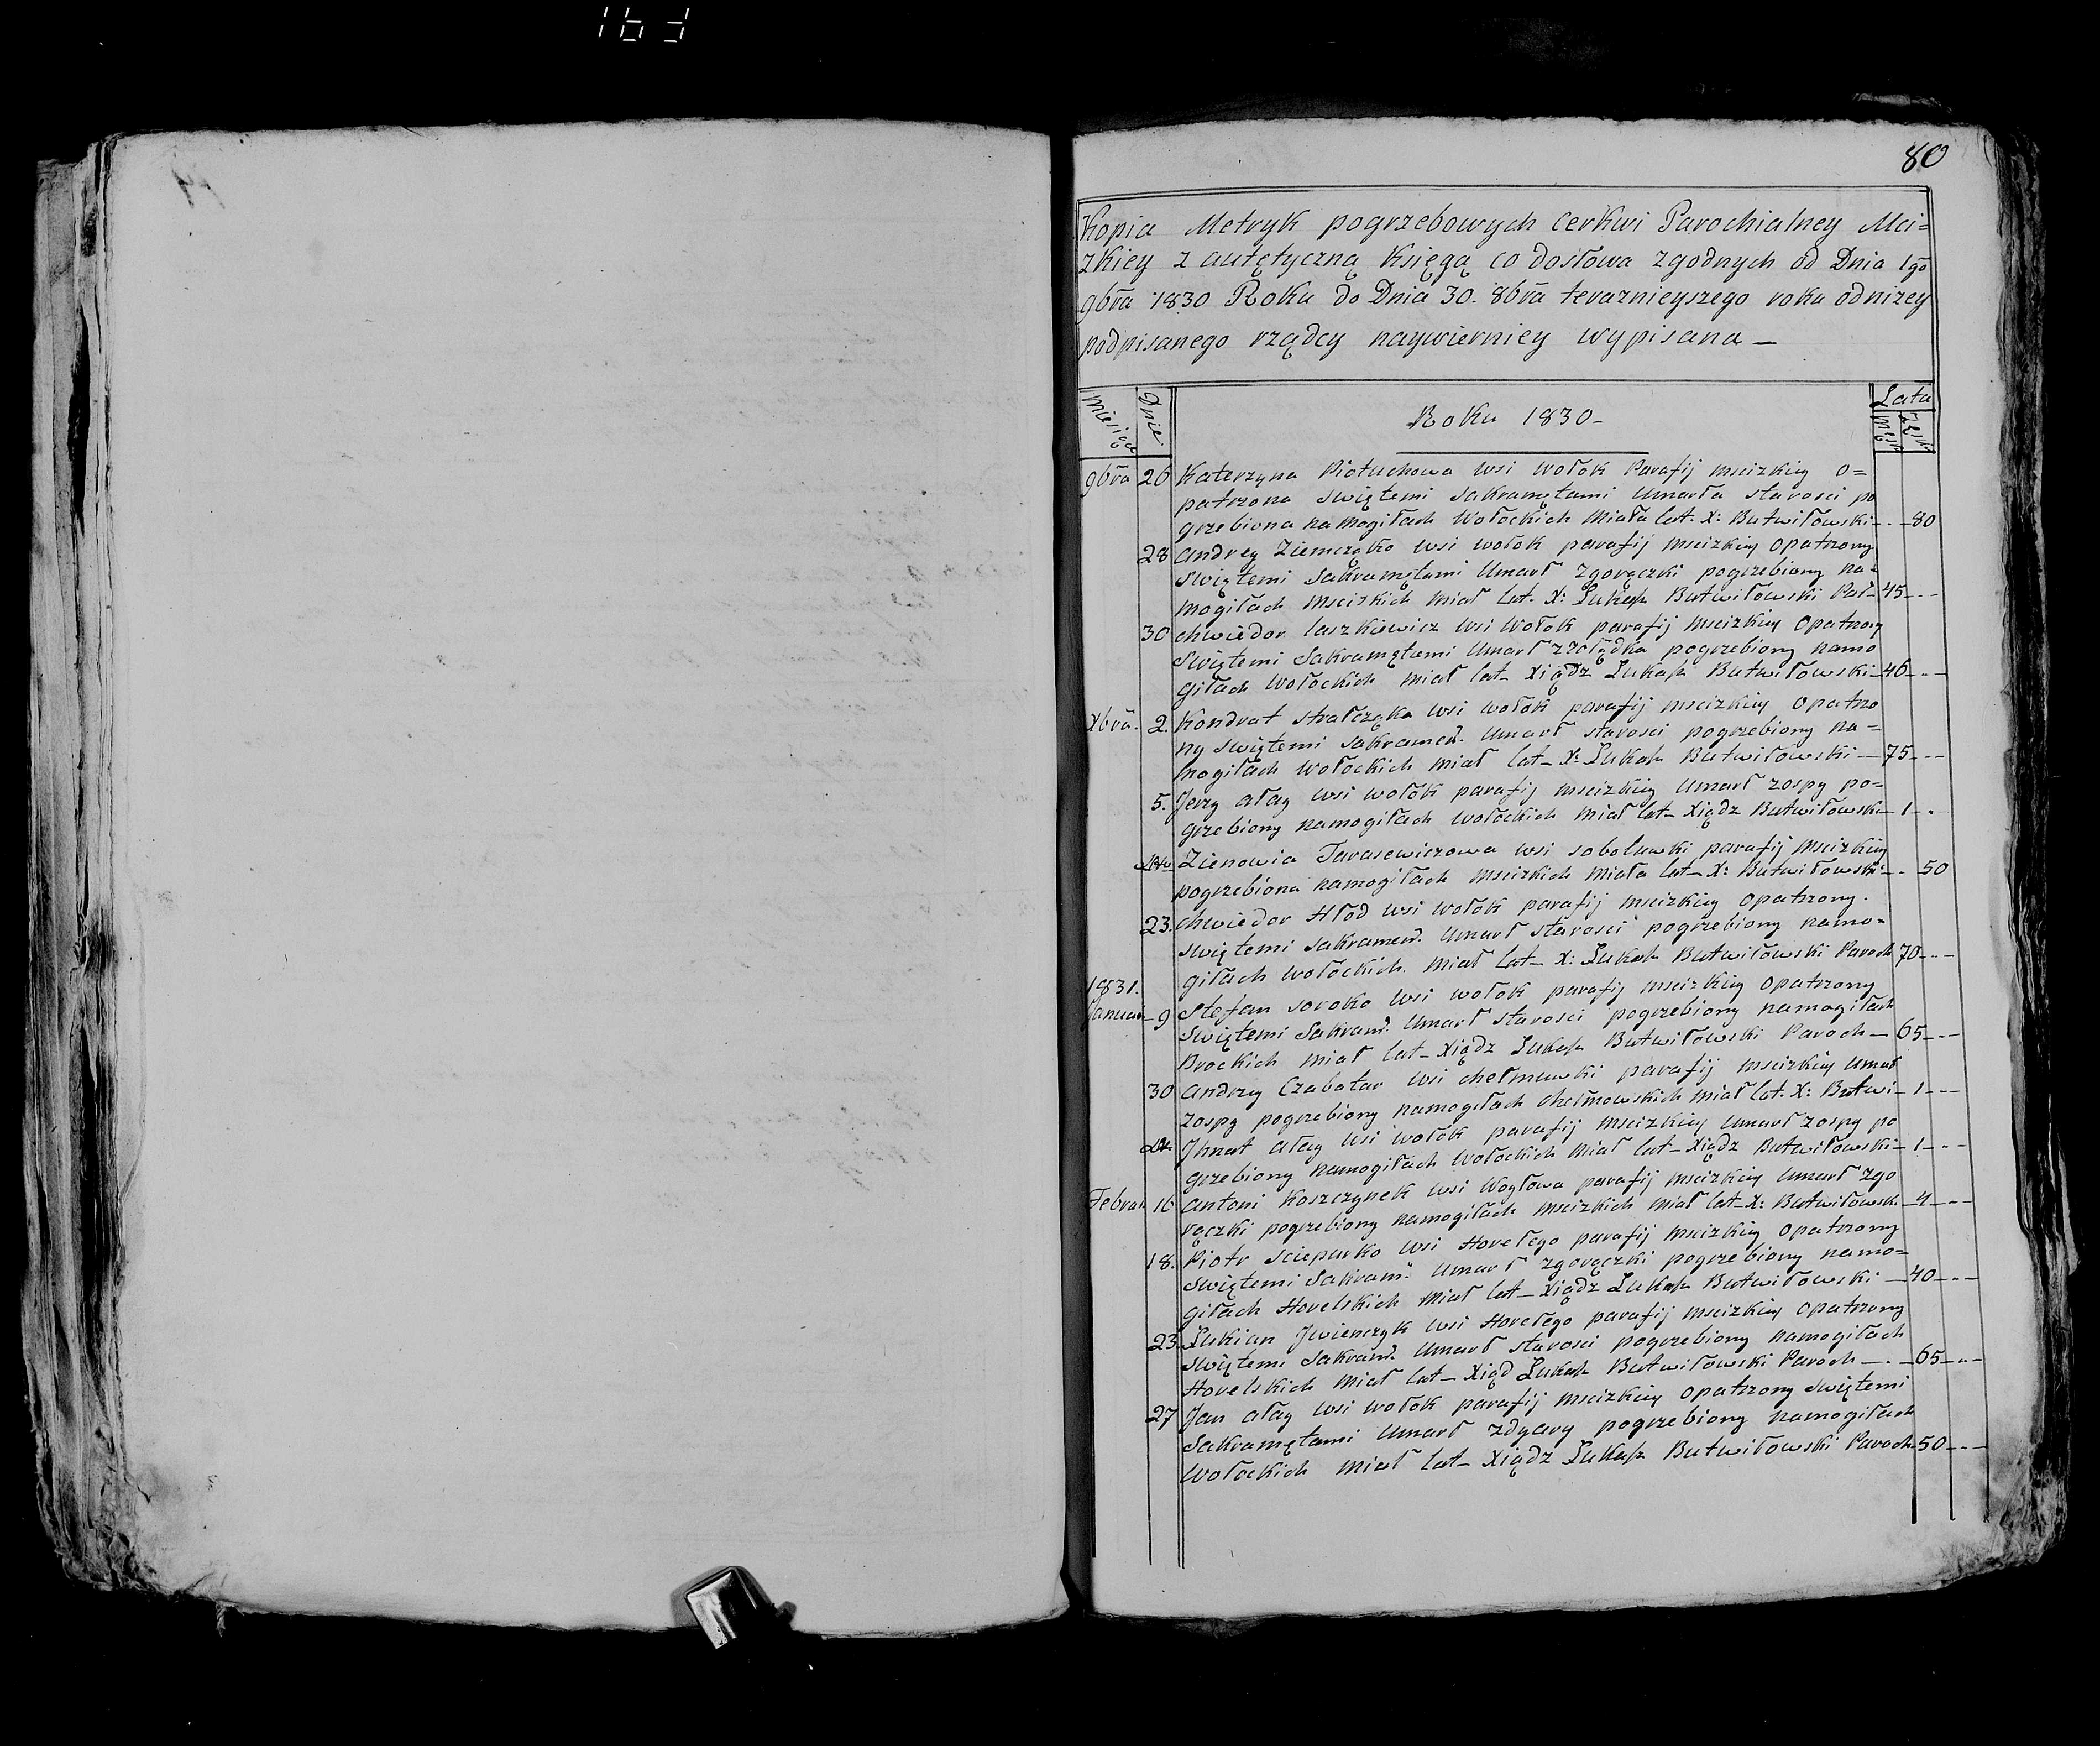 163
80
Kopia Metryk pogrzebowych Cerkwi Parochialney Mci=
zkiey z autętyczną Księgą co dosłowa zgodnych od Dnia 1go
9bra 1830 Roku do Dnia 30. 8bra teraznieyszego roku od nizey
podpisanego rządcy naywierniey wypisana —
Miesiąc Dnie Roku 1830 – Lata
męsk żęsk
9bra 26 Katerzyna Piotuchowa wsi Wołok Parafij mscizkiey o=
patrzona swiętemi Sakramętami Umarła starosci po
grzebiona na Mogiłach Wołockich Miała lat. X: Butwiłowski - - - 80
28 Andrey Ziemczątko wsi wołok parafij mscizkiey Opatrzony
Swiętemi Sakramętami Umarł zgorączki pogrzebiony na=
mogiłach Mscizkich miał lat. X: Łukasz Butwiłowski Par - 45 - - -
30 Chwiedor laszkiewicz wsi Wołok parafij mscizkiey Opatrzony
Swiętemi Sakramętami Umarł zżołądka pogrzebiony namo
giłach Wołockich miał lat – Xiądz Łukasz Butwiłowski - 46 - - -
Xbra. 2. Kondrat stralczęka wsi wołok parafij mscizkiey Opatrzo
ny swiętemi Sakramen. Umarł starosci pogrzebiony na=
mogiłach Wołockich miał lat – X: Łukasz Butwiłowski — 75 - - -
5. Jerzy ałay wsi wołok parafij mscizkiey Umarł zospy po=
grzebiony namogiłach Wołockich miał lat – Xiądz Butwiłowski - 1 - -
Zienowia Tarasewiczowa wsi sobolewki parafij Mscizkiey
pogrzebiona namogiłach Mscizkich miała lat – X: Butwiłowski - - 50
23. Chwiedor Hłod wsi wołok parafij mscizkiey Opatrzony.
swiętemi Sakramen. Umarł starosci pogrzebiony namo=
giłach wołockich. miał lat – X: Łukasz Butwiłowski Paroch 70 - - -
1831.
Januar – 9 Stefan soroko wsi wołok parafij mscizkiey Opatrzony
Swiętemi Sakram. Umarł starosci pogrzebiony namogiłach
Brockich miał lat – Xiądz Łukasz Butwiłowski Paroch — 65 - - -
30 Andrzy Czabatar wsi chełmowski parafij mscizkiey Umarł
zospy pogrzebiony namogiłach Chełmowskich miał lat. X: Butwi - 1 - - -
Jhnat ałay wsi wołok parafij mscizkiey Umarł zospy po
grzebiony namogiłach Wołockich miał lat – Xiądz Butwiłowski - 1 - - -
Februar 16 antoni Koszczynek wsi Woytowa parafij mscizkiey Umarł zgo
rączki pogrzebiony namogiłach mscizkich miał lat – X: Butwiłowsk. - 4 - - -
18. Piotr Sciepurko wsi Horełego parafij mscizkiey Opatrzony
Swiętemi Sakram. Umarł zgorączki pogrzebiony namo=
giłach Horelskich miał lat – Xiądz Łukasz Butwiłowski — 40 - - -
23. Łukian Jwienczyk wsi Horełego parafij mscizkiey Opatrzony
Swiętemi Sakram. Umarł starosci pogrzebiony namogiłach
Horelskich miał lat – Xiąd Łukasz Butwiłowski Paroch — - 65 - - -
27 Jan ałay wsi wołok parafij mscizkiey Opatrzony Swiętemi
Sakramętami Umarł zdyary pogrzebiony namogiłach
Wołockich miał lat – Xiądz Łukasz Butwiłowski Paroch 50 - - -